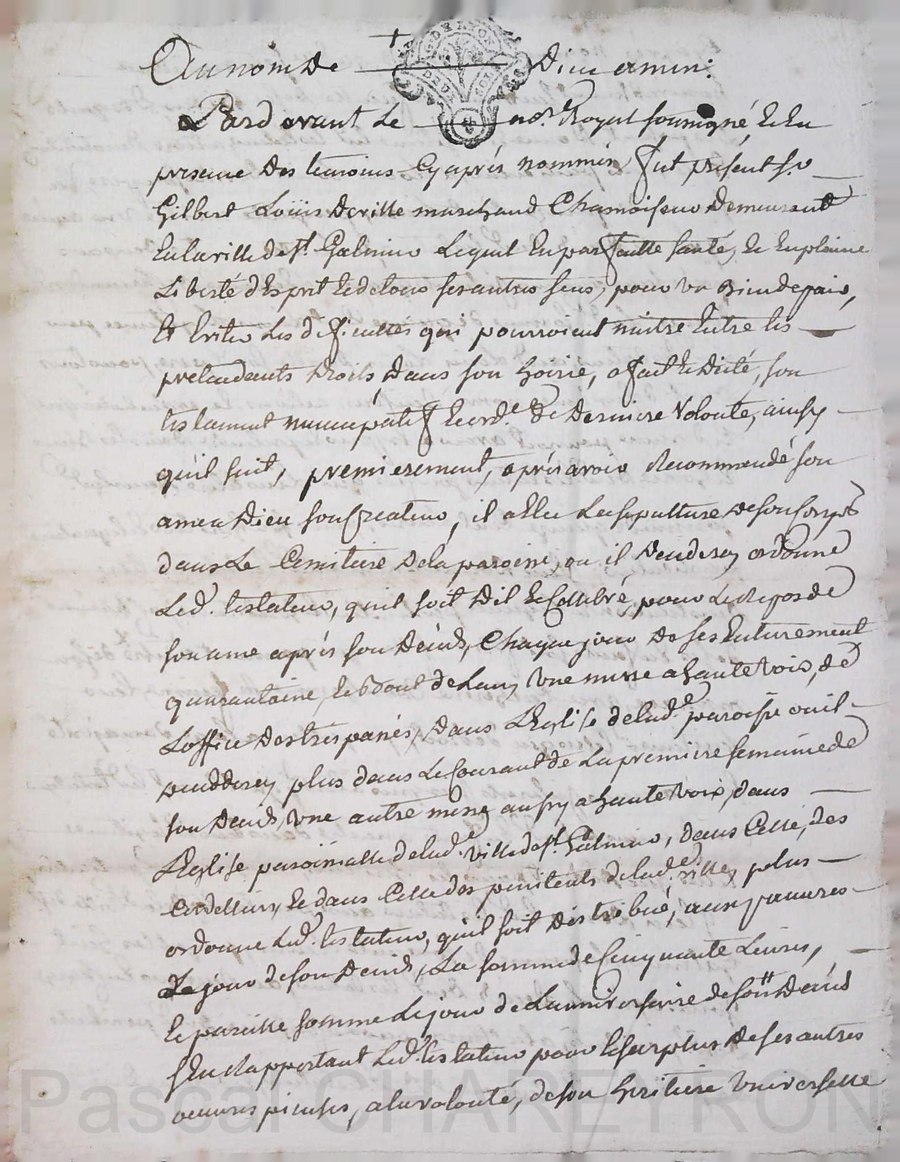 Au nom de Dieu amen :
Pard avant Le no.re Royal soussigné et en
presence des temoins cy après nommés fut présent sr.
Gilbert Loüis Deville marchand Chamoiseur demeurant
en la ville de st. Galmier Lequel en parfaitte santé, et en pleine
Liberté d'Esprit et de tous ses autres sens, pour un Bien de paix,
et Eviter Les dificultés qui pourroient naitre entre les
pretendants droits, dans son hoirie, a fait et dicté, son
testament nuncupatif et ord.e de derniere volonté, ainsy
qu'il suit, premierement, après avoir Recommandé son
ame a Dieu son Createur, il a élu La sepulture de son Corps
dans Le Cemitiere de la paroisse, ou il decedera, ordonne
Led. testateur, qu'il soit dit et Cellebré, pour Le Repos de
son ame après son décéds, Chaque jour de ses enterrement
quarantaine, et bout de L'an, une messe a haute voix, de
L'office des trespassés, dans L'Eglise de lad.e paroisse ou il
deceddera, plus dans Le Courant de La premiere semaine de
son décéds, une autre messe aussy a haute voix, dans
L'Eglise paroissialle de lad.e ville de st. Galmier, dans Celle, des
Cordelliers, et dans Celle des penitents de lad.e ville, plus
ordonne Led. testateur, qu'il soit distribué, aux pauvres
Le jour de son décéds, La somme de Cinquante Livres,
et pareille somme Le jour de L'anniversaire de son décéds
s'en Rapportant Led. testateur pour Le surplus de ses autres
oeuvres pieuses, a la volonté, de son heritiere universelle
Pascal CHAREYRON